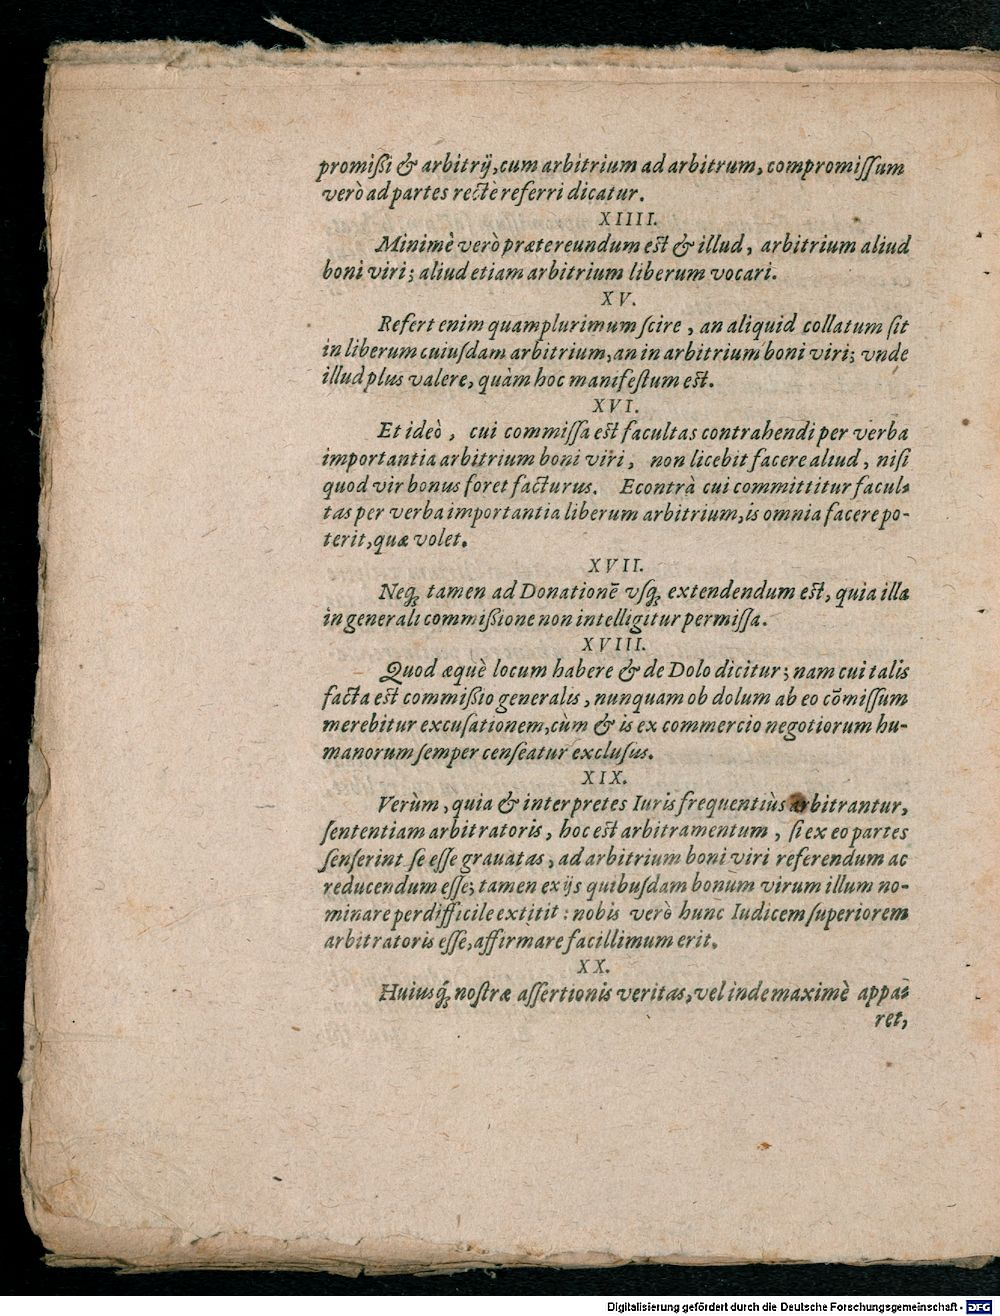 promißi & arbitrij, cum arbitrium ad arbitrum, compromiſſum
verò ad partes rectè referri dicatur.
XIIII.
Minimè verò prætereundum est & illud, arbitrium aliud
boni viri; aliud etiam arbitrium liberum vocari.
XV.
Refert enim quamplurimum ſcire, an aliquid collatum ſit
in liberum cuiuſdam arbitrium, an in arbitrium boni viri; vnde
illud plus valere, quàm hoc manifeſtum est.
XVI.
Et ideò, cui commiſſa est facultas contrahendi per verba
importantia arbitrium boni viri, non licebit facere aliud, niſi
quod vir bonus foret facturus. Econtrà cui committitur facul-
tas per verba importantia liberum arbitrium, is omnia facere po-
terit, quæ volet.
XVII.
Neq; tamen ad Donationē vſq; extendendum est, quia illa
in generali commißione non intelligitur permiſſa.
XVIII.
Quod æquè locum habere & de Dolo dicitur; nam cui talis
facta est commißio generalis, nunquam ob dolum ab eo cōmiſſum
merebitur excuſationem, cùm & is ex commercio negotiorum hu-
manorum ſemper cenſeatur excluſus.
XIX.
Verùm, quia & interpretes Iuris frequentiùs arbitrantur,
ſententiam arbitratoris, hoc est arbitramentum, ſi ex eo partes
ſenſerint ſe eſſe grauatas, ad arbitrium boni viri referendum ac
reducendum eſſe; tamen ex ijs quibuſdam bonum virum illum no-
minare perdifficile extitit: nobis verò hunc Iudicem ſuperiorem
arbitratoris eſſe, affirmare facillimum erit.
XX.
Huiusq́; noſtræ aſſertionis veritas, vel inde maximè appa-
ret,
Digitalisierung gefördert durch die Deutsche Forschungsgemeinschaft - DFG